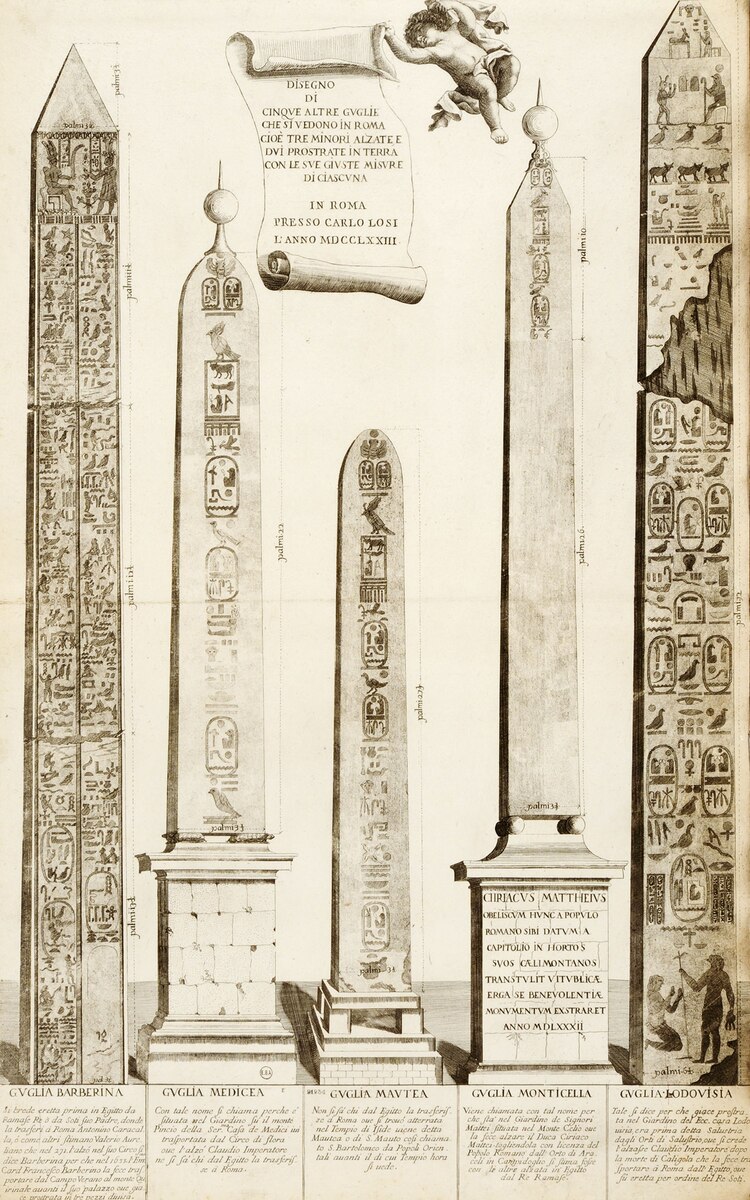 DISEGNO
DI
CINQVE ALTRE GVGLIE
CHE SI VEDONO IN ROMA
CIOÈ TRE MINORI ALZATE E
DVI PROSTRATE IN TERRA
CON LE SVE GIVSTE MISVRE
DI CIASCVNA
IN ROMA
PRESSO CARLO LOSI
L'ANNO MDCCLXXIII
palmi 22
palmi 10
palmi 26
palmi 72
CIIRIACVS MATTHEIVS
OBELISCVM HVNC A POPVLO
ROMANO SIBI DATVM A
CAPITOLIO IN HORTOS
SVOS CÆLIMONTANOS
TRANSTVLIT VT PVBLICÆ
ERGA SE BENEVOLENTIÆ
MONVMENTVM EXSTRARET
ANNO MDLXXXII
GVGLIA BARBERINA
Si crede eretta prima in Egitto da
Ramase Rè, ò da Soti suo Padre, donde
la trasferì a Roma Antonino Caracal
la, ò come altri stimano Valerio Aure
liano che nel 271. l'alzò nel suo Circo si
dice Barberina per che nel 1633. l'Em.
Card. Francesco Barberino la fece tras
portare dal Campo Verano al monte Qui
rinale avanti il suo palazzo oue gia
ce prostrata in tre pezzi divisa.
GVGLIA MEDICEA
Con tale nome si chiama perche è
situata nel Giardino su il monte
Pincio della Ser. Casa de Medici ivi
trasportata dal Circo di flora
oue l'alzò Claudio Imperatore
ne si sà chi dal Egitto la trasferis
se a Roma.
GVGLIA MAVTEA
Non si sà chi dal Egitto la trasferis
se a Roma oue si trovò atterrata
nel Tempio de Iside uene detta
Mautea o di S. Mauto così chiama
to S. Bartolomeo da Popoli Orien
tali auanti il di cui Tempio hora
si uede.
GVGLIA MONTICELLA
Viene chiamata con tal nome per
che sta nel Giardino de Signori
Mattei situata nel Monte Celio oue
la fece alzare il Duca Ciriaco
Mattei togliendola con licenza del
Popolo Romano dall'Orto di Ara
celi in Campidoglio si stima fosse
con le altre alzata in Egitto
dal Re Ramase.
GVGLIA LODOVISIA
Tale si dice per che giace prostra
ta nel Giardino dell' Ecc. casa Lodo
uisia era prima detta Salustria
dagli Orti di Salustio, oue si crede
l'alzasse Claudio Imperatore dopo
la morte di Caligola che la fece tra
sportare à Roma dall' Egitto, oue
fu eretta per ordine del Re Soti.